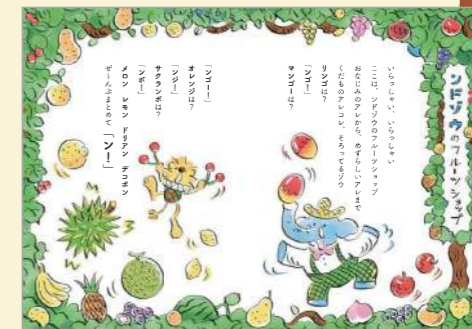 ンドゾウのフルーツショップ
いらっしゃい、いらっしゃい
ここは、ンドゾウのフルーツショップ
おなじみのアレから、めずらしいアレまで
くだものアレコレ、そろってるゾウ
リンゴは?
「ンゴ!」
マンゴーは?
「ンゴー!」
オレンジは?
「ンジ!」
サクランボは?
「ンボ!」
メロン レモン ドリアン デコポン
ぜ〜んぶまとめて「ン!」